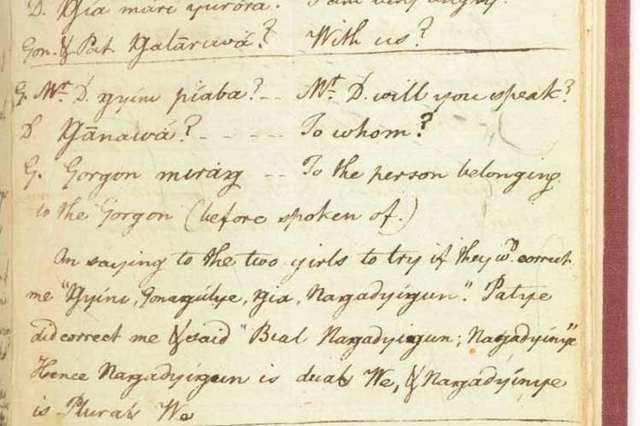 D. Ŋía mári yuróra. I am very angry.
Gon. & Pat. Ŋalāriwá? With us?
G. Mr. D. ŋyíni píaba? -- Mr. D. will you speak?
D. Ŋānawá? - - - - - To whom?
G. Gorgon miráŋ -- To the person belonging
to the Gorgon (before spoken of.)
On saying to the two girls to try if they wd. correct
me "Ŋyíni, Gonagúlye, ŋia, Naŋadyíŋun". Patye
did correct me & said "Bial Naŋadyíŋun; Naŋadyíŋye"
Hence Naŋadyíŋun is dual We, & Naŋadyíŋye
is Plural We